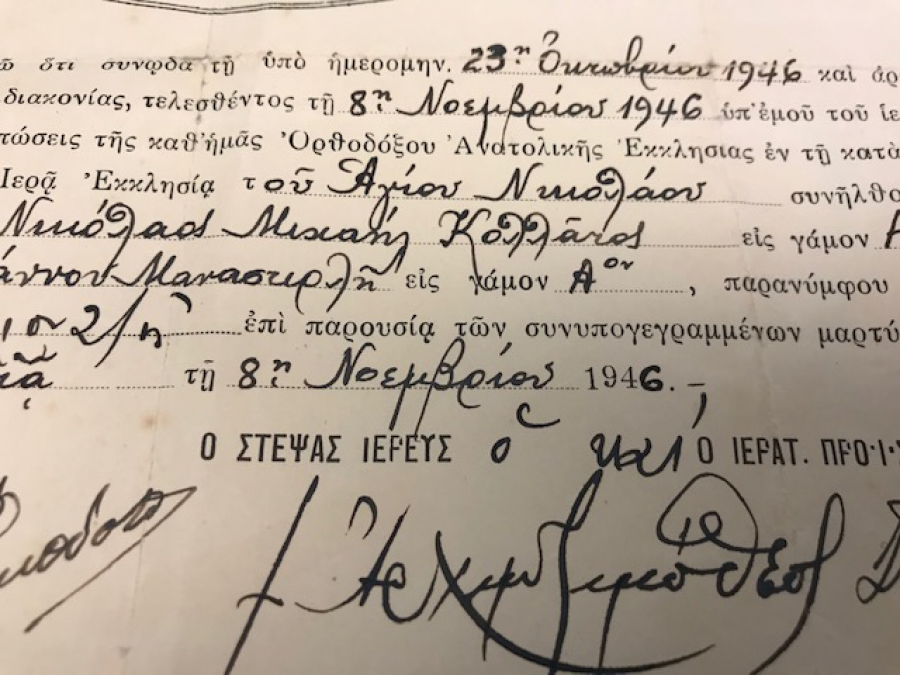 ῶ ὅτι συνῳδὰ τῇ ὑπὸ ἡμερομην. 23ῃ Ὀκτωβρίου 1946 καὶ ἀρ
διακονίας, τελεσθέντος τῇ 8ῃ Νοεμβρίου 1946 ὑπ' ἐμοῦ τοῦ ἱε
τώσεις τῆς καθ' ἡμᾶς Ὀρθοδόξου Ἀνατολικῆς Ἐκκλησίας ἐν τῇ κατὰ
Ἱερᾷ Ἐκκλησίᾳ τοῦ Ἁγίου Νικολάου συνῆλθο
Νικόλαος Μιχαὴλ Κολλᾶτος εἰς γάμον
άννου Μαναστερλῆ εἰς γάμον Αον , παρανύμφου
ἐπὶ παρουσίᾳ τῶν συνυπογεγραμμένων μαρτύ
τῇ 8ῃ Νοεμβρίου 1946. –
Ο ΣΤΕΨΑΣ ΙΕΡΕΥΣ ὁ καὶ Ο ΙΕΡΑΤ. ΠΡΟ·Ι·